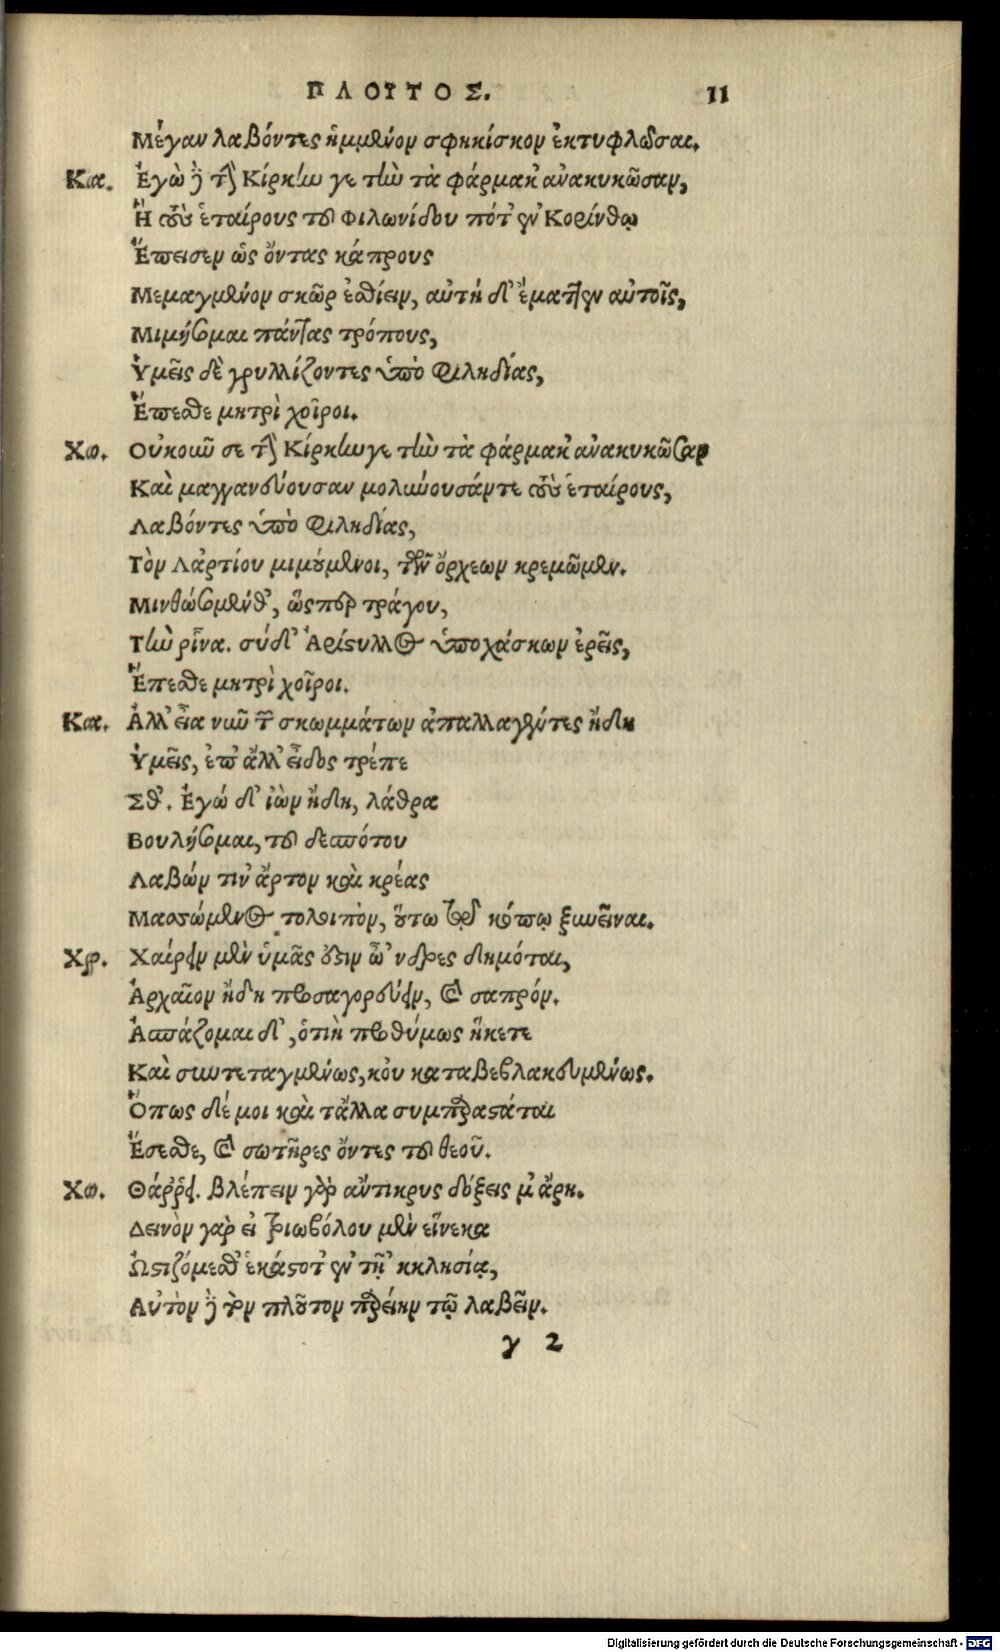 ΠΛΟΥΤΟΣ. 11
Μέγαν λαβόντες ἡμμένον σφηκίσκον ἐκτυφλῶσαι.
Κα. Ἐγὼ δὲ τὴν Κίρκην γε τὴν τὰ φάρμακ' ἀνακυκῶσαν,
Ἣ τοὺς ἑταίρους τοῦ Φιλωνίδου πότ' ἐν Κορίνθῳ
Ἔπεισεν ὡς ὄντας κάπρους
Μεμαγμένον σκῶρ ἐσθίειν, αὐτὴ δ' ἔματτεν αὐτοῖς,
Μιμήσομαι πάντας τρόπους,
Ὑμεῖς δὲ γρυλλίζοντες ὑπὸ φιληδίας,
Ἕπεσθε μητρὶ χοῖροι.
Χο. Οὐκοῦν σε τὴν Κίρκην γε τὴν τὰ φάρμακ' ἀνακυκῶσαν
Καὶ μαγγανεύουσαν μολύνουσάν τε τοὺς ἑταίρους,
Λαβόντες ὑπὸ φιληδίας,
Τὸν Λαρτίου μιμούμενοι, τῶν ὄρχεων κρεμῶμεν.
Μινθώσομέν θ', ὥσπερ τράγου,
Τὴν ῥῖνα. σύ δ' Ἀρίστυλλος ὑποχάσκων ἐρεῖς,
Ἕπεσθε μητρὶ χοῖροι.
Κα. Ἀλλ' εἶα νῦν τῶν σκωμμάτων ἀπαλλαγέντες ἤδη
Ὑμεῖς, ἐπ' ἄλλ' εἶδος τρέπε
Σθ'. Ἐγώ δ' ἰὼν ἤδη, λάθρα
Βουλήσομαι, τοῦ δεσπότου
Λαβών τιν' ἄρτον καὶ κρέας
Μασσώμενος τολοιπὸν, οὕτω τῷ κόπῳ ξυνεῖναι.
Χρ. Χαίρειν μὲν ὑμᾶς ὖσιν ὦ 'νδρες δημόται,
Ἀρχαῖον ἤδη προσαγορεύειν, καὶ σαπρόν.
Ἀσπάζομαι δ', ὁτιὴ προθύμως ἥκετε
Καὶ συντεταγμένως, κοὐ καταβεβλακευμένως.
Ὅπως δέ μοι καὶ τἄλλα συμπαραστάται
Ἔσεσθε, καὶ σωτῆρες ὄντες τοῦ θεοῦ.
Χο. Θάῤῥει. βλέπειν γὰρ ἄντικρυς δόξεις μ' ἄρη.
Δεινὸν γὰρ εἰ τριωβόλου μὲν εἵνεκα
Ὠστιζόμεσθ' ἑκάστοτ' ἐν τῇ 'κκλησίᾳ,
Αὐτὸν δὲ τὸν πλοῦτον παρείην τῷ λαβεῖν.
γ 2
Digitalisierung gefördert durch die Deutsche Forschungsgemeinschaft - DFG